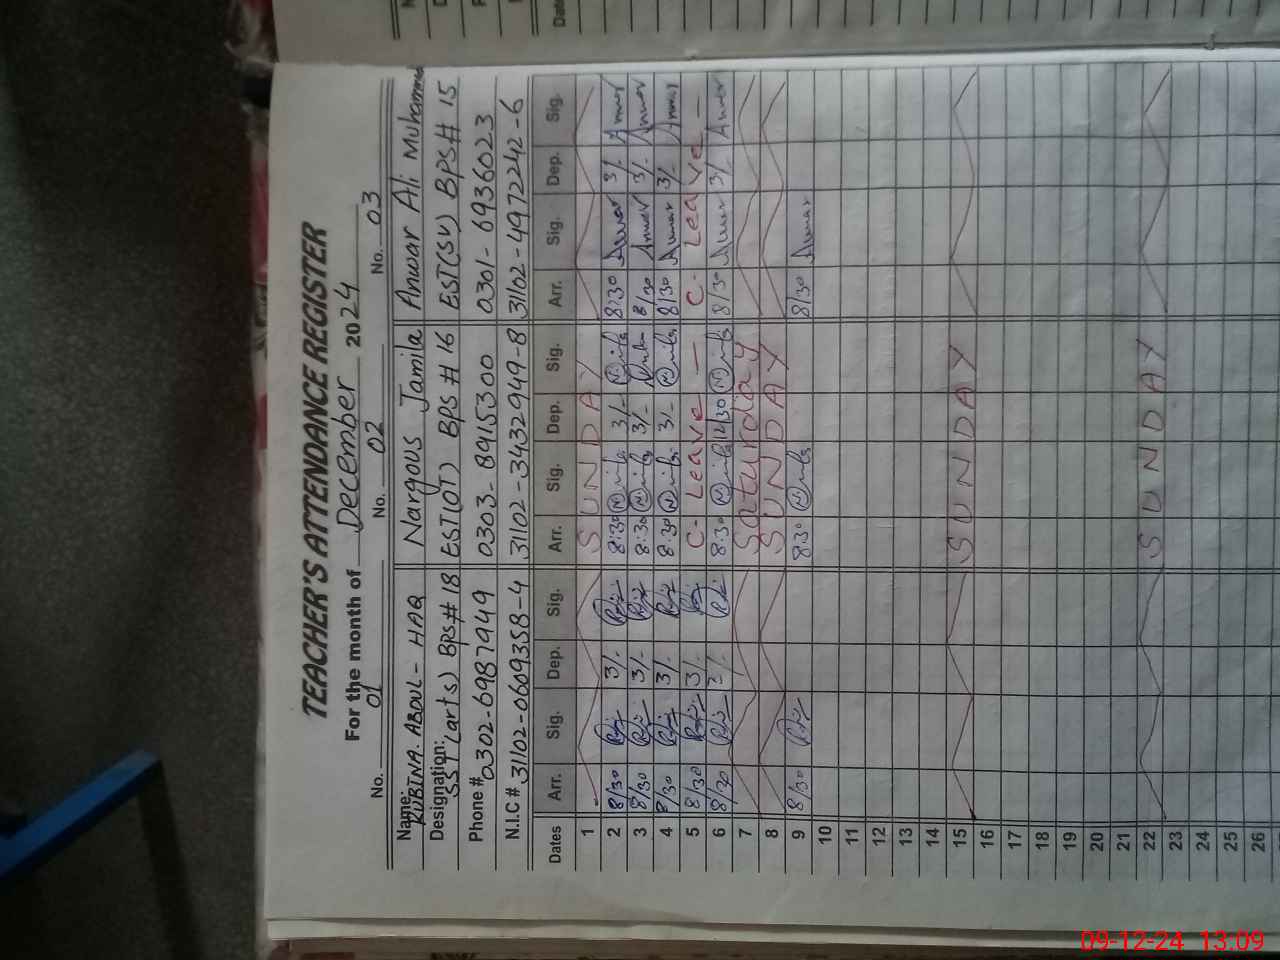 TEACHER'S ATTENDANCE REGISTER
For the month of December 2024
No. 01 No. 02 No. 03
Name: RUBINA. ABDUL - HAQ Nargous Jamila Anwar Ali Muhammad
Designation: SST (arts) BPS# 18 EST(OT) BPS # 16 EST(SV) BPS# 15
Phone # 0302-6987949 0303- 8915300 0301- 6936023
N.I.C # 31102-0609358-4 31102-3432949-8 31102-4972242-6
Dates Arr. Sig. Dep. Sig. Arr. Sig. Dep. Sig. Arr. Sig. Dep. Sig.
1 SUNDAY
2 8/30 3/- 8:30 3/- 8:30 Anwar 3/- Anwar
3 8/30 3/- 8:30 3/- 8/30 Anwar 3/- Anwar
4 8/30 3/- 8:30 3/- 8/30 Anwar 3/- Anwar
5 8/30 3/- C- Leave - C- Leave -
6 8/30 3/- 8:30 12/30 8/30 Anwar 3/- Anwar
7 Saturday
8 SUNDAY
9 8/30 8:30 8/30 Anwar
10
11
12
13
14
15 SUNDAY
16
17
18
19
20
21
22 SUNDAY
23
24
25
26
09-12-24 13:09